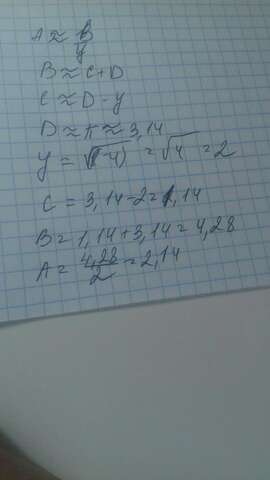 A ≈ B/y
B ≈ C+D
C ≈ D-y
D ≈ π ≈ 3,14
y = √(-4) = √4 = 2
C = 3,14-2=1,14
B = 1,14+3,14=4,28
A = 4,28/2 = 2,14